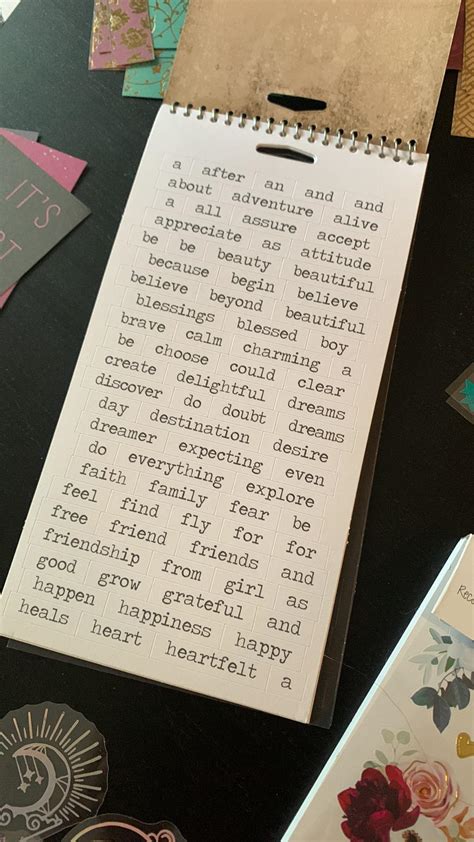 a after an and and
about adventure alive
a all assure accept
appreciate as attitude
be be beauty beautiful
because begin believe
believe beyond beautiful
blessings blessed boy
brave calm charming a
be choose could clear
create delightful dreams
discover do doubt dreams
day destination desire
dreamer expecting even
do everything explore
faith family fear be
feel find fly for for
free friend friends and
friendship from girl as
good grow grateful and
happen happiness happy
heals heart heartfelt a
IT'S